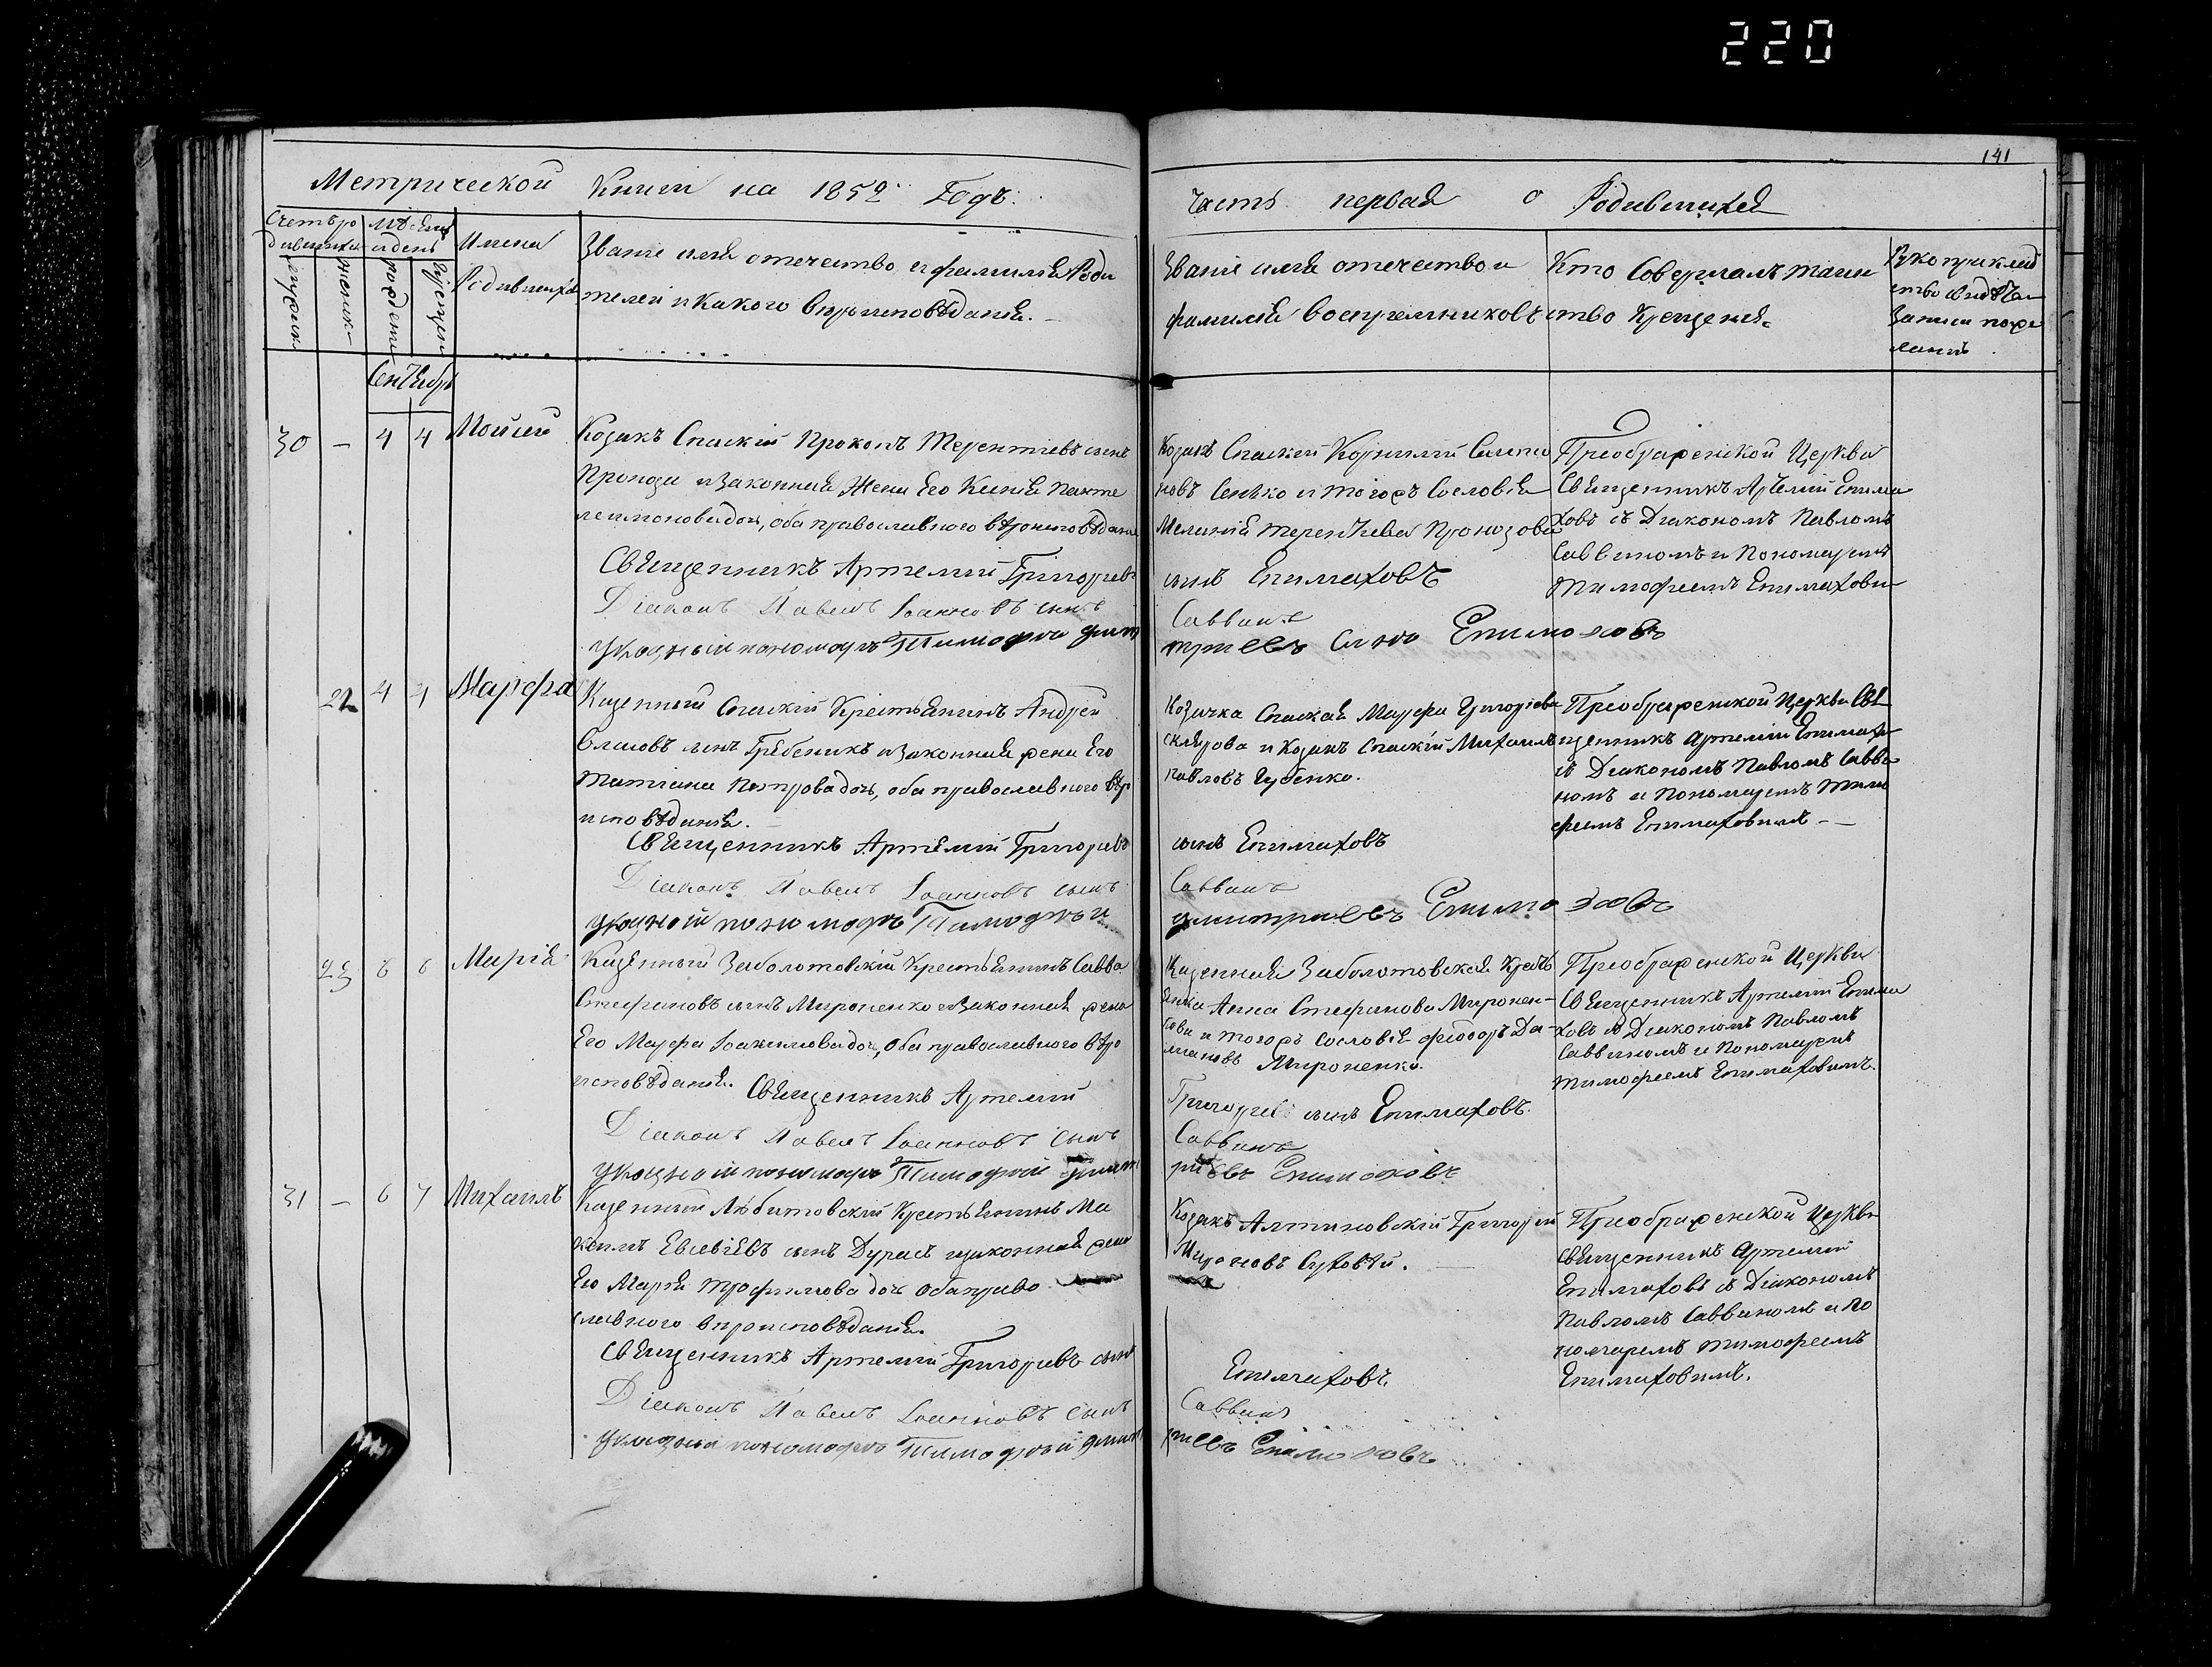 220
141
Метрической Книги на 1852 Годъ.
Часть первая о Родившихся
Имена
Родившихся
Званіе имя отечество и фамилія Роди
телей и какого вѣроисповѣданія.
Званіе имя отечество и
фамилія воспріемниковъ
Кто Совершалъ таин
ство Крещенія
Рукоприклад
ство свидѣте
записи поже
ланію
Сентябрь
30 - 4 4 Мойсей
Козакъ Спаскій Прокопъ Терентіевъ сынъ
Пронози и Законная Жена Его Ксенія Панте
леимонова дочь, оба православного вѣроисповѣданія
Священникъ Артемій Григорьевъ
Діаконъ Павелъ Іоанновъ сынъ
Указный пономарь Тимофей Дмит
Козакъ Спаскій Корнилій
новъ Сенько и тогожъ Сословія
Меланія Терентіева Пронозова
сынъ Епимаховъ
Саввинъ
тріевъ Сынъ Епимаховъ
Преображенской Церкви
Священникъ Артемій Епима
ховъ съ Діакономъ Павломъ
Саввиномъ и Пономаремъ
Тимофеемъ Епимахови
22 4 4 Марфа
Казенный Спаскій Крестьянинъ Андрей
Власовъ сынъ Гребеникъ и Законная жена Его
Татіана Петрова дочь, оба православного вѣро
исповѣданія.
Священникъ Артемій Григорьевъ
Діаконъ Павелъ Іоанновъ сынъ
Указный пономарь Тимофей
Козачка Спаская Марфа Григоріева
Склярова и Козакъ Спаскій Михаилъ
Павловъ Губенко.
сынъ Епимаховъ
Саввинъ
Дмитріевъ Епимаховъ
Преображенской Церкви Свя
щенникъ Артемій Епимахо
съ Діакономъ Павломъ Савви
номъ и Пономаремъ Тимо
феемъ Епимаховимъ
23 6 6 Марія
Казенный Заболотовскій Крестьянинъ Савва
Стефановъ сынъ Мироненко и Законная жена
Его Марфа Іоакимова дочь, Оба православного вѣро
исповѣданія. Священникъ Артемій
Діаконъ Павелъ Іоанновъ сынъ
Указный пономарь Тимофей Дмит
Казенная Заболотовская Кресть
янка Анна Стефанова Миронен-
кова и тогожъ сословія Феодоръ Да-
міановъ Мироненко.
Григорьевъ сынъ Епимаховъ.
Саввинъ
ріевъ Епимаховъ
Преображенской Церкви
Священникъ Артемій Епима
ховъ съ Діакономъ Павломъ
Саввиномъ и Пономаремъ
Тимофеемъ Епимаховимъ.
31 - 6 7 Михаилъ
Казенный Любитовскій Крестьянинъ Ма
ксимъ Евсевіевъ сынъ Дурасъ изаконная жена
Его Марія Трофимова дочь оба право
славного вѣроисповѣданія.
Священникъ Артемій Григорьевъ сынъ
Діаконъ Павелъ Іоанновъ сынъ
Указный пономарь Тимофей Дмит
Козакъ Алтиновскій Григорій
Мироновъ Суховѣй.
Епимаховъ.
Саввинъ
ріевъ Епимаховъ
Преображенской Церкви
Священникъ Артемій
Епимаховъ съ Діакономъ
Павломъ Саввиномъ и По
номаремъ Тимофеемъ
Епимаховимъ.